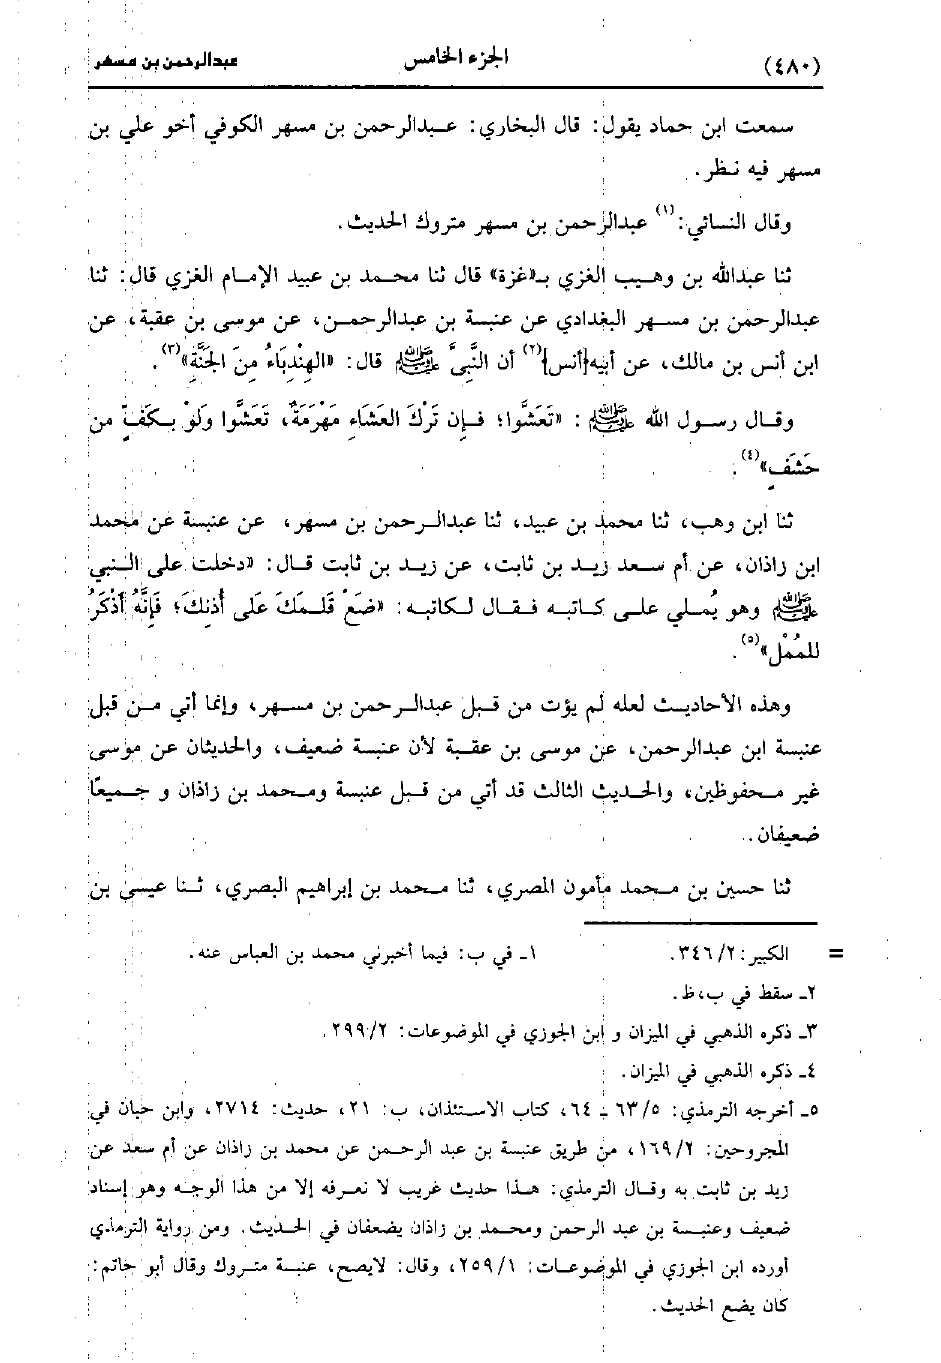 (٤٨٠) الجزء الخامس عبدالرحمن بن مسهر
سمعت ابن حماد يقول: قال البخاري: عبدالرحمن بن مسهر الكوفي أخو علي بن
مسهر فيه نظر.
وقال النسائي:(١) عبدالرحمن بن مسهر متروك الحديث.
ثنا عبدالله بن وهيب الغزي بـ«غزة» قال ثنا محمد بن عبيد الإمام الغزي قال: ثنا
عبدالرحمن بن مسهر البغدادي عن عنبسة بن عبدالرحمن، عن موسى بن عقبة، عن
ابن أنس بن مالك، عن أبيه[أنس](٢) أن النَّبيَّ ﷺ قال: «الهِنْدِبَاءُ مِنَ الجَنَّةِ»(٣).
وقال رسول الله ﷺ: «تَعَشَّوا؛ فإن تَرْكَ العَشَاءِ مَهْرَمَةٌ، تَعَشَّوا وَلَوْ بِكَفٍّ من
حَشَفٍ»(٤).
ثنا ابن وهب، ثنا محمد بن عبيد، ثنا عبدالرحمن بن مسهر، عن عنبسة عن محمد
ابن زاذان، عن أم سعد زيد بن ثابت، عن زيد بن ثابت قال: «دخلت على النبي
ﷺ وهو يُملي على كاتبه فقال لكاتبه: «ضَعْ قَلَمَكَ عَلَى أُذنِكَ؛ فَإِنَّهُ أَذْكَرُ
للمُمْلِ»(٥).
وهذه الأحاديث لعله لم يؤت من قبل عبدالرحمن بن مسهر، وإنما أتي من قبل
عنبسة ابن عبدالرحمن، عن موسى بن عقبة لأن عنبسة ضعيف، والحديثان عن موسى
غير محفوظين، والحديث الثالث قد أتي من قبل عنبسة ومحمد بن زاذان و جميعًا
ضعيفان.
ثنا حسين بن محمد مأمون المصري، ثنا محمد بن إبراهيم البصري، ثنا عيسى بن
= الكبير: ٣٤٦/٢. ١ـ في ب: فيما أخبرني محمد بن العباس عنه.
٢ـ سقط في ب،ظ.
٣ـ ذكره الذهبي في الميزان و ابن الجوزي في الموضوعات: ٢٩٩/٢.
٤ـ ذكره الذهبي في الميزان.
٥ـ أخرجه الترمذي: ٦٣/٥ ـ ٦٤، كتاب الاستئذان، ب: ٢١، حديث: ٢٧١٤، وابن حبان في
المجروحين: ١٦٩/٢، من طريق عنبسة بن عبد الرحمن عن محمد بن زاذان عن أم سعد عن
زيد بن ثابت به وقال الترمذي: هذا حديث غريب لا نعرفه إلا من هذا الوجه وهو إسناد
ضعيف وعنبسة بن عبد الرحمن ومحمد بن زاذان يضعفان في الحديث. ومن رواية الترمذي
أورده ابن الجوزي في الموضوعات: ٢٥٩/١، وقال: لايصح، عنبسة متروك وقال أبو حاتم:
كان يضع الحديث.